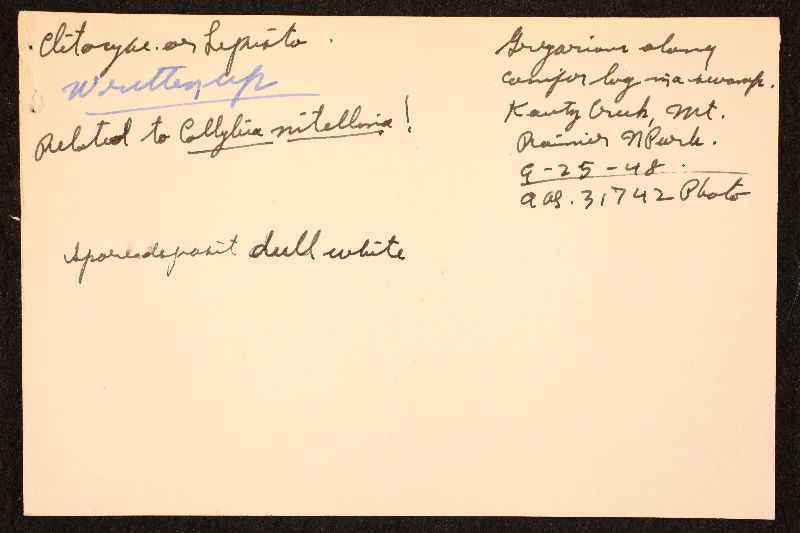 Clitocybe. or Lepista .
Written up
Related to Collybia nitellina !
Sporedeposit dull white
Gregarious along
conifer log in a swamp.
Kautz Creek, Mt.
Rainier N Park.
9-25-48.
AHS. 31742 Photo